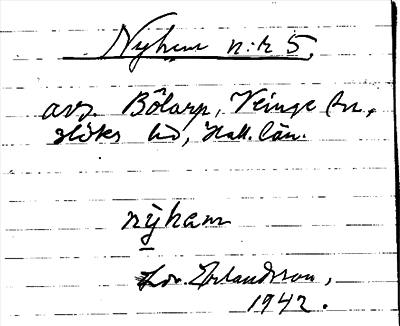 Nyhem n:r 5.
avs. Bölarp, Veinge sn,
Höks hd, Hall. län.
nỳhem
Edv. Erlandsson,
1942.